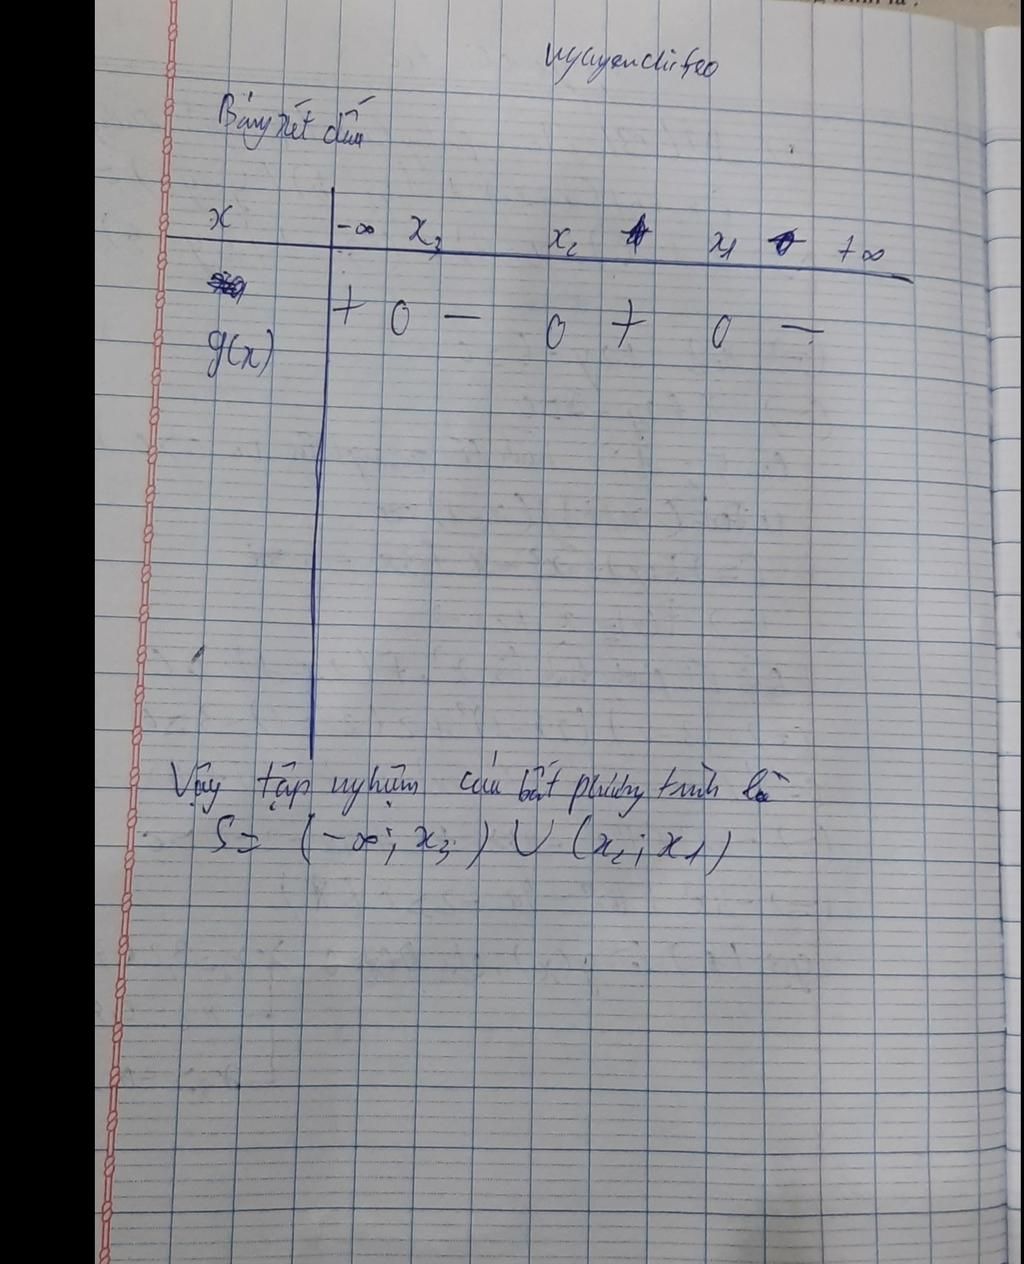 nguyenchifeo
Bảng xét dấu
x -∞ x₃ x₂ x₁ +∞
g(x) + 0 - 0 + 0 -
Vậy tập nghiệm của bất phương trình là
S= (-∞; x₃) ∪ (x₂; x₁)